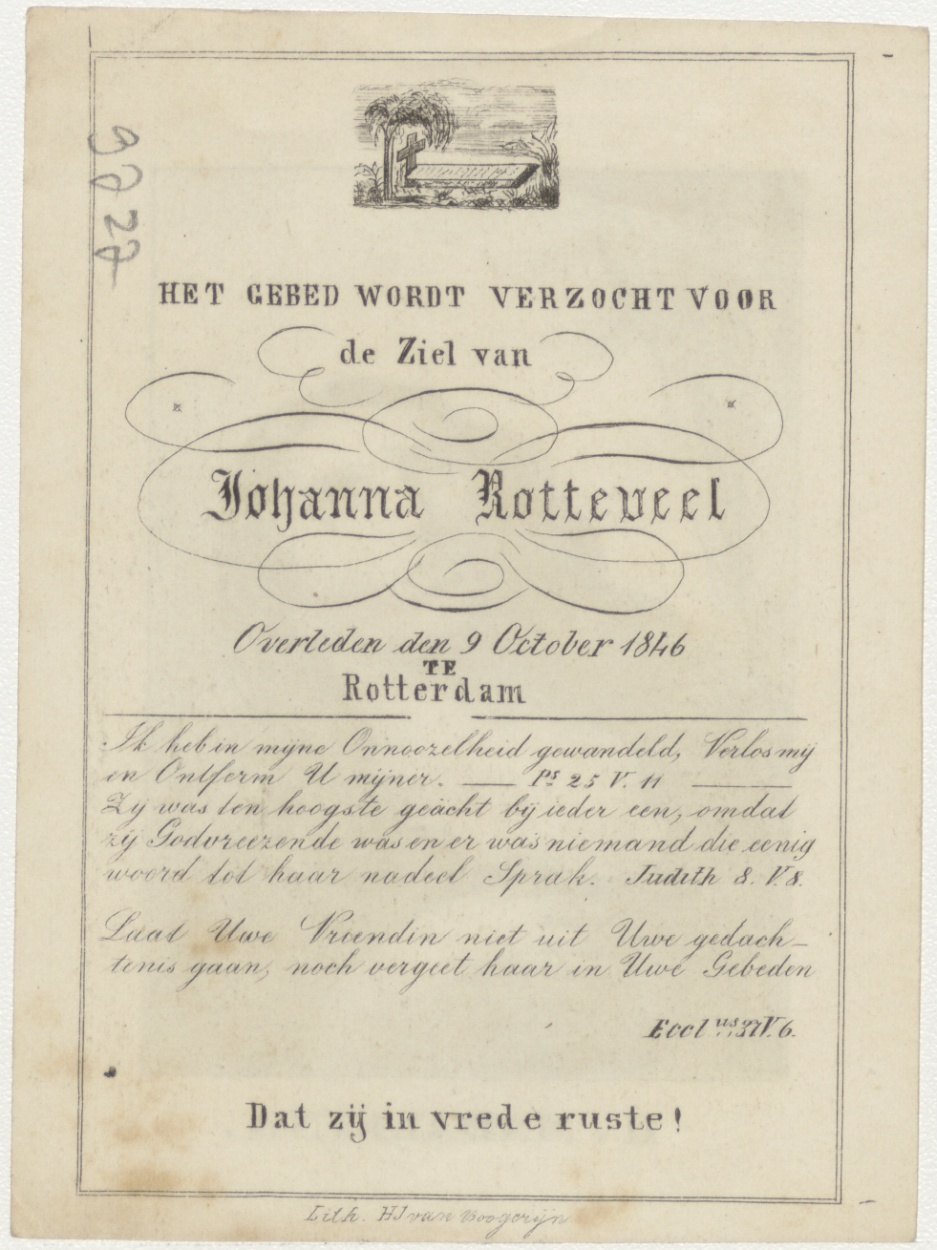 9227
HET GEBED WORDT VERZOCHT VOOR
de Ziel van
Johanna Rotteveel
Overleden den 9 October 1846
TE
Rotterdam
Ik heb in mijne Onnoozelheid gewandeld, Verlos mij
en Ontferm U mijner. — Ps 25 V. 11 —
Zij was ten hoogste geächt bij ieder een, omdat
zij Godvreezende was en er was niemand die eenig
woord tot haar nadeel Sprak. Judith 8. V. 8.
Laat Uwe Vriendin niet uit Uwe gedach-
tenis gaan, noch vergeet haar in Uwe Gebeden
Eccl us 37 V. 6.
Dat zij in vrede ruste!
Lith. HJ van